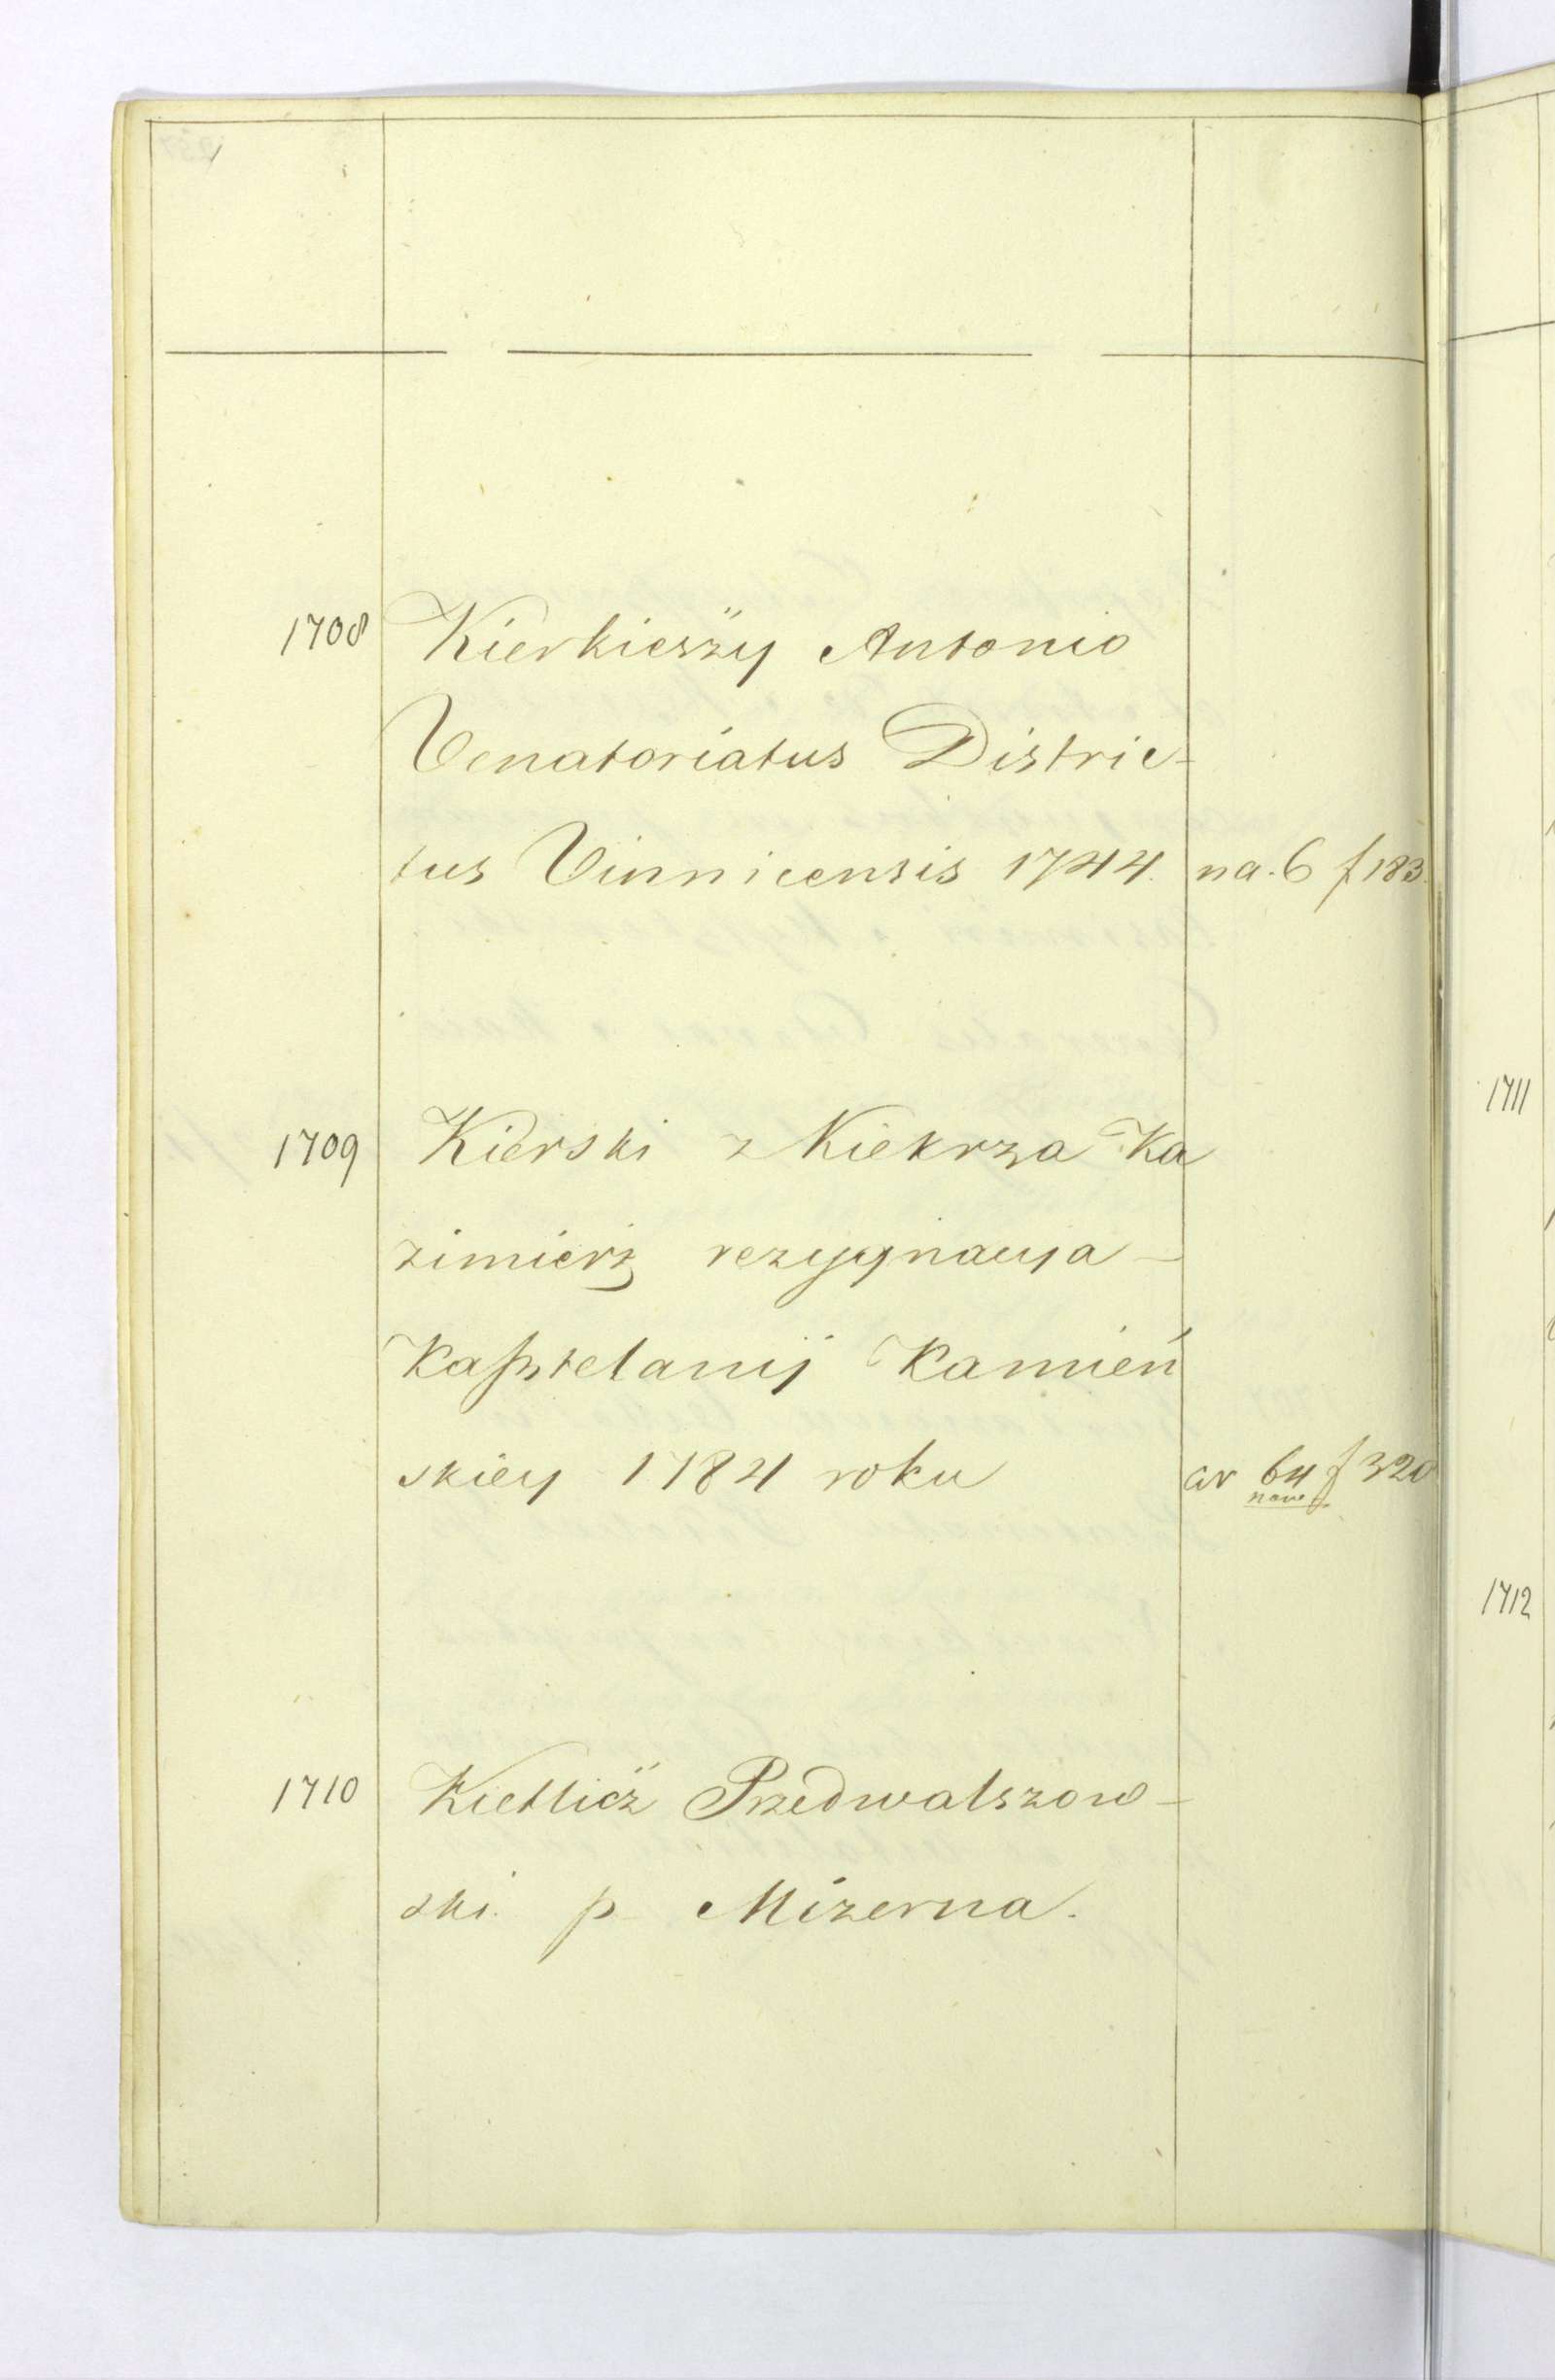 1708 Kierkieszÿ Antonio
Venatoriatus Distric-
tus Vinnicensis 1744. na. 6 f 183.
1709 Kierski z Kiekrza Ka
zimierz rezygnacya -
Kasztelanij Kamień
skiey 1784 roku av 64 f 320
nove
1710 Kietlicz Przedwalszow-
ski. p Mizerna.
1711
1712